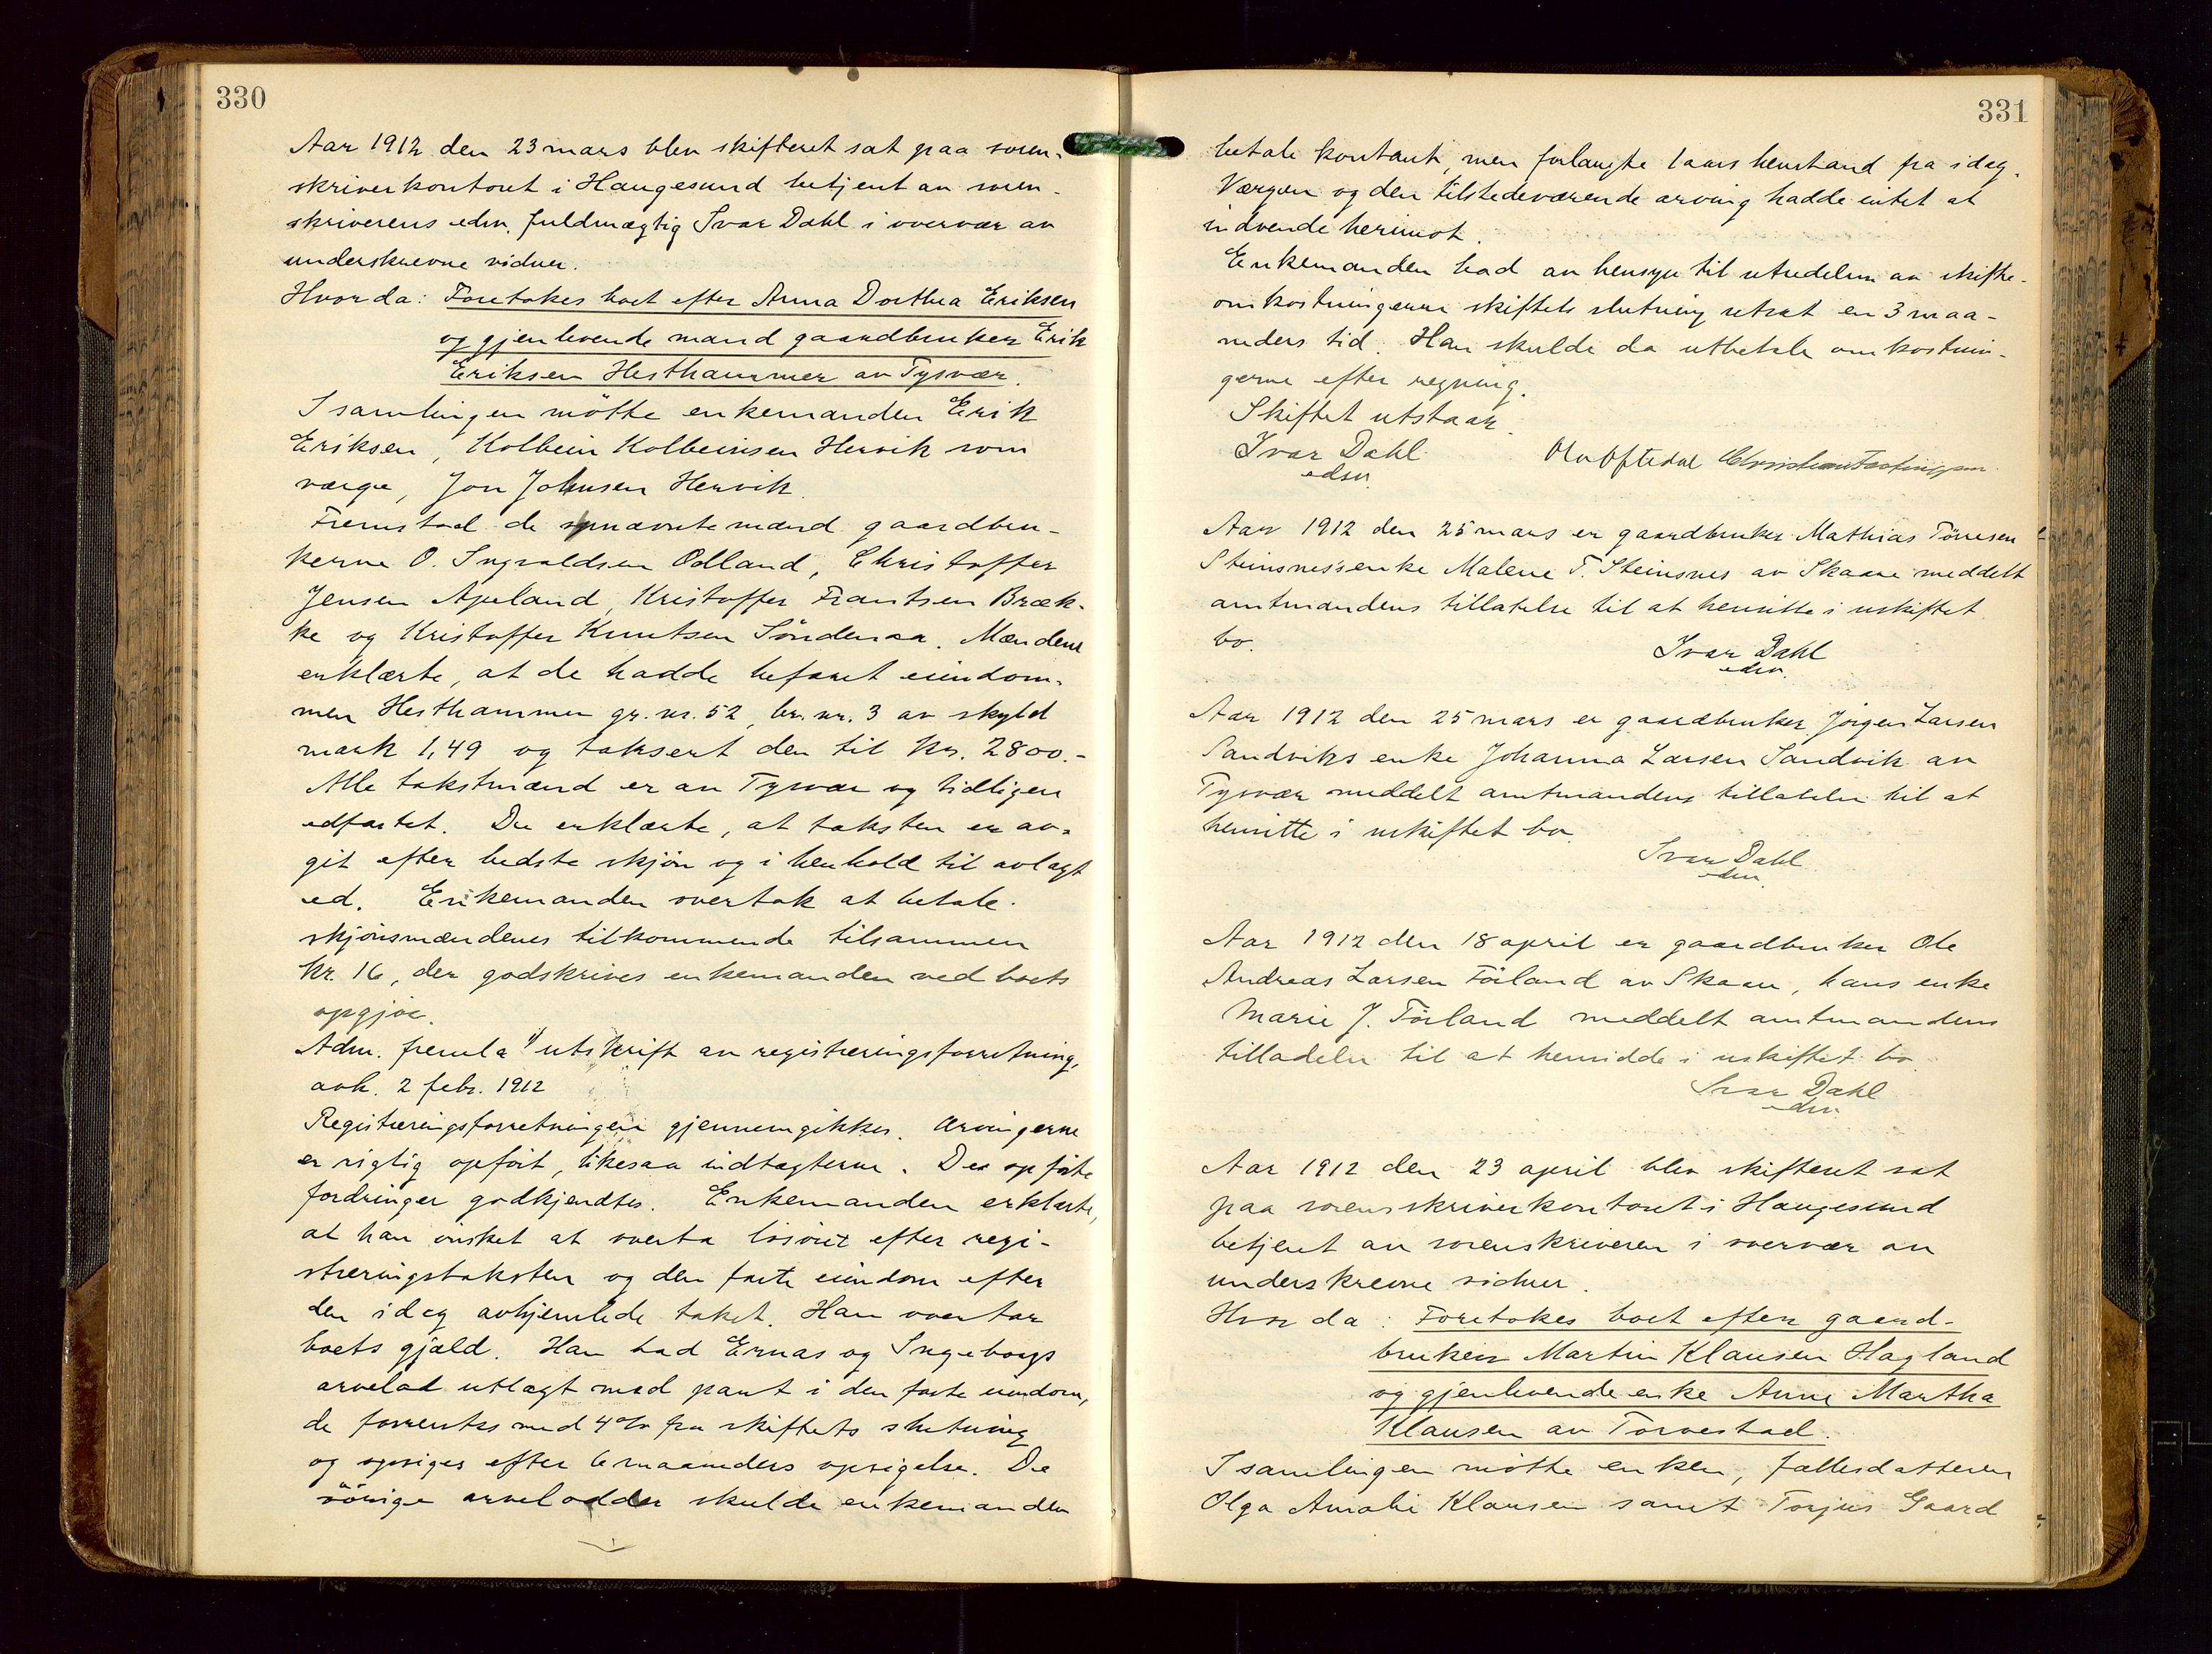 330
Aar 1912 den 23 mars blev skifteret sat paa soren-
skriverkontoret i Haugesund betjent av soren-
skriverens edsv. fuldmægtig Ivar Dahl i overvær av
underskrevne vidner.
Hvorda: Foretokes boet efter Anna Dorthea Eriksen
og gjenlevende mand gaardbruker Erik
Eriksen Hesthammer av Tysvær.
I samlingen mötte enkemanden Erik
Eriksen, Kolbein Kolbeinsen Hervik som
værge, Jon Johnsen Hervik.
Fremstod de opnævnte mænd gaardbru-
kerne O. Ingvaldsen Odland, Christoffer
Jensen Apeland, Kristoffer Frantsen Bræk-
ke og Kristoffer Knutsen Söndenaa. Mændene
erklærte, at de hadde befaret eiendom-
men Hesthammer gr. nr. 52, br. nr. 3 av skyld
mark 1,49 og taksert den til kr. 2800.-
Alle takstmænd er av Tysvær og tidligere
edfæstet. De erklærte, at taksten er av-
git efter bedste skjön og i henhold til avlagt
ed. Enkemanden overtok at betale
skjönsmændenes tilkommende tilsammen
kr. 16, der godskrives enkemanden ved boets
opgjör.
Adm. fremla 1) utskrift av registreringsforretning,
avh. 2 febr. 1912
Registreringsforretningen gjennemgikkes. Arvingerne
er rigtig opfört, likesaa indtægterne. De opförte
fordringer godkjendtes. Enkemanden erklærte,
at han önsket at overta lösöret efter regi-
streringstaksten og den faste eiendom efter
den idag avhjemlede takst. Han overtar
boets gjæld. Han bad Ernas og Ingeborgs
arvelod utlagt med pant i den faste eiendom,
de forrentes med 4% fra skiftets slutning
og opsiges efter 6 maaneders opsigelse. De
övrige arvelodder skulde enkemanden
331
betale kontant, men forlangte 1 aars henstand fra idag.
Værgen og den tilstedeværende arving hadde intet at
indvende herimot.
Enkemanden bad av hensyn til utredelsen av skifte-
omkostningerne skiftets slutning utsat en 3 maa-
neders tid. Han skulde da utbetale omkostnin-
gerne efter regning.
Skiftet utstaar.
Ivar Dahl
edsv.
Ola Oftedal Christian Tastingsen
Aar 1912 den 25 mars er gaardbruker Mathias Törresen
Steinsnes's enke Malene T. Steinsnes av Skaare meddelt
amtmandens tillatelse til at hensitte i uskiftet
bo.
Ivar Dahl
edsv.
Aar 1912 den 25 mars er gaardbruker Jörgen Larsen
Sandviks enke Johanna Larsen Sandvik av
Tysvær meddelt amtmandens tillatelse til at
hensitte i uskiftet bo.
Ivar Dahl
edsv.
Aar 1912 den 18 april er gaardbruker Ole
Andreas Larsen Förland av Skaare, hans enke
Marie J. Förland meddelt amtmandens
tilladelse til at hensidde i uskiftet bo.
Ivar Dahl
edsv.
Aar 1912 den 23 april blev skifteret sat
paa sorenskriverkontoret i Haugesund
betjent av sorenskriveren i overvær av
underskrevne vidner.
Hvor da: Foretokes boet efter gaard-
bruker Martin Klausen Hagland
og gjenlevende enke Anne Martha
Klausen av Torvestad.
I samlingen mötte enken, fællesdatteren
Olga Amalie Klausen samt Torjus Gaard